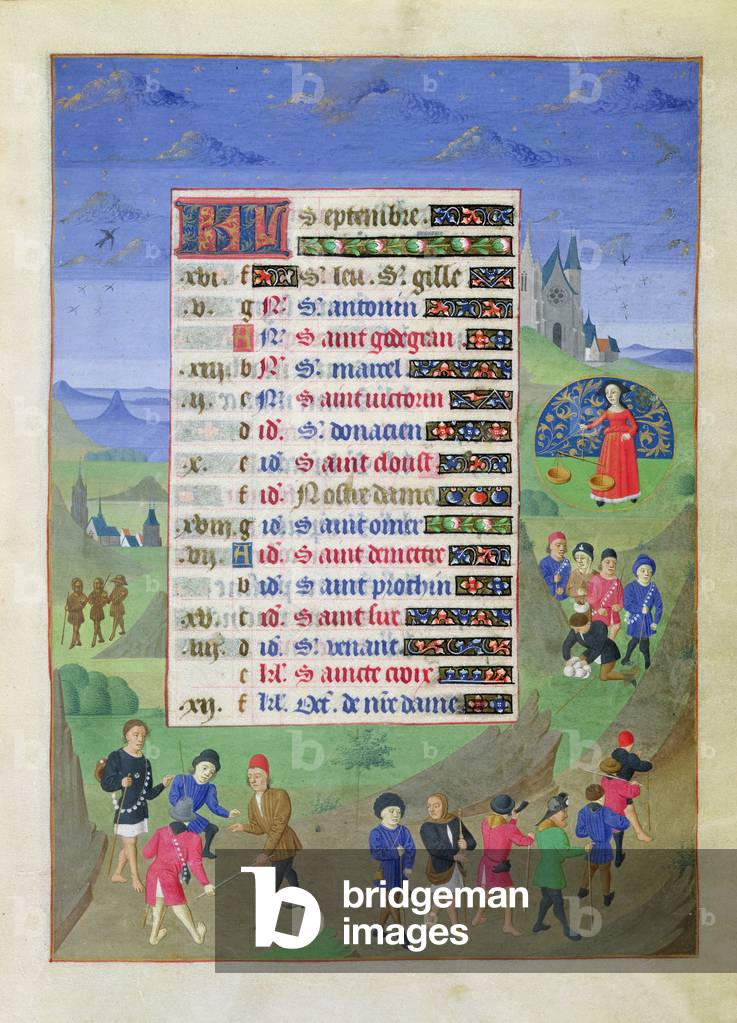 KL Septembre.
.xvi. f S. leu. S. gille
.v. g N. S. antonin
A N. Saint godegran
.xiii. b N. S. marcel
.ii. c N. Saint victorin
d id. S. donacien
.x. e id. Saint cloust
f id. Nostre dame
.xviii. g id. Saint omer
.vii. A id. Saint demettre
b id. Saint prothin
.xv. c id. Saint sir
.iiii. d id. S. venant
e kl. Saincte croix
.xii. f kl. Oct. de nre dame
b bridgeman
images